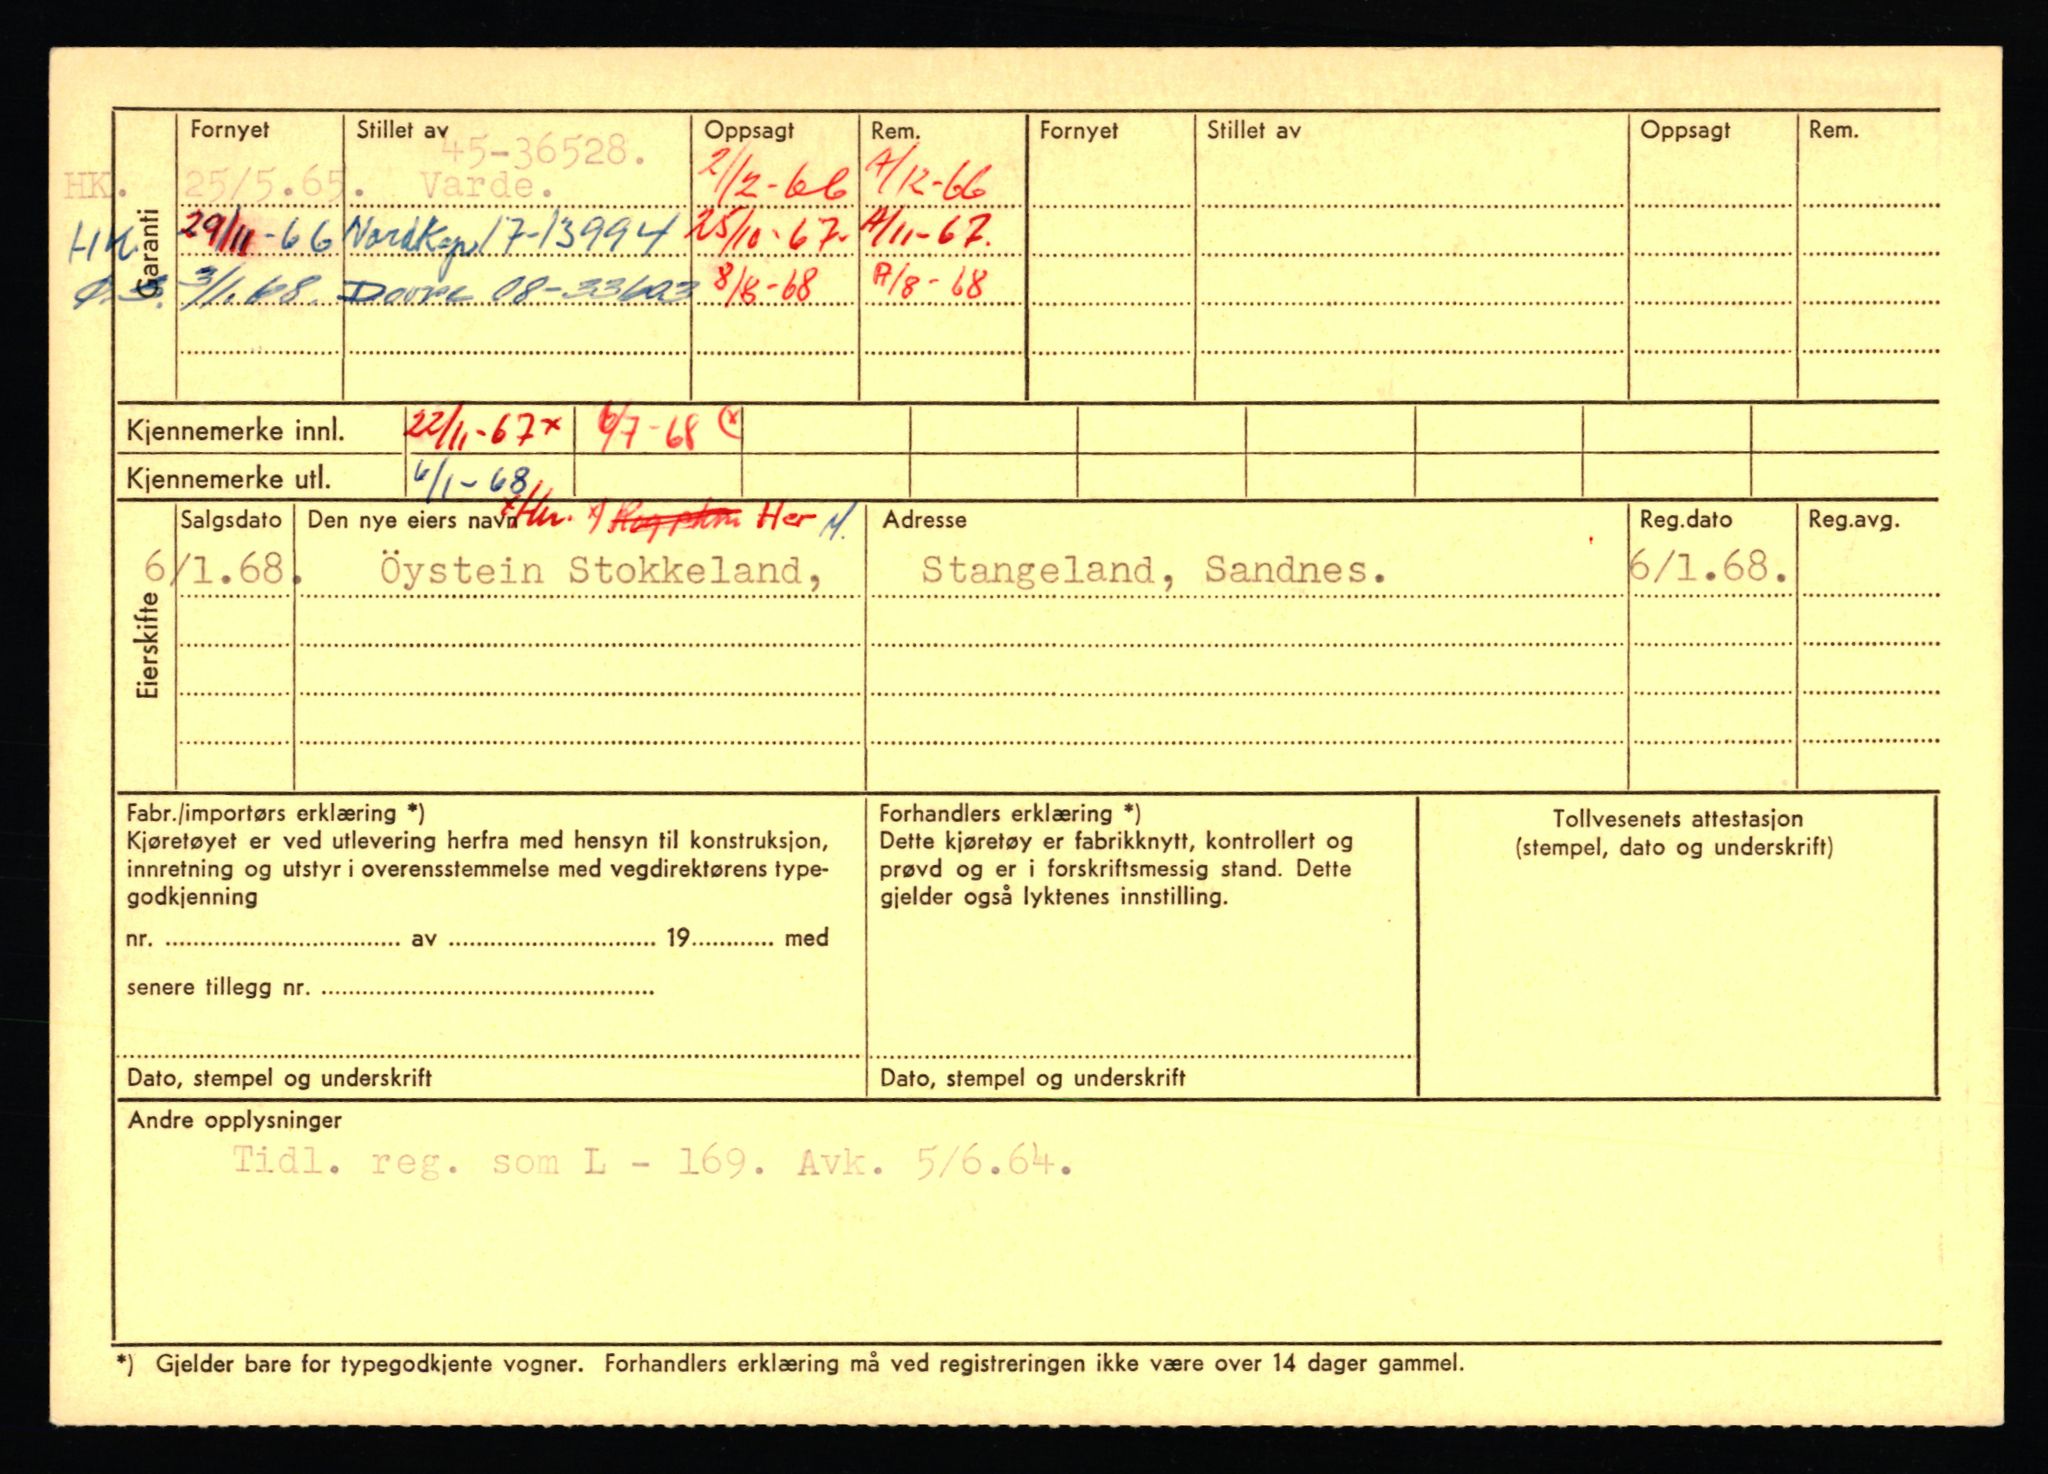 Garanti
Fornyet Stillet av Oppsagt Rem. Fornyet Stillet av Oppsagt Rem.
45-36528.
HK. 25/5.65. Varde. 2/12-66 A/12-66
HK. 29/11-66 Nordkap 17-13994 25/10-67. A/11-67.
Ø.S. 3/1.68. Dovre 08-33603 8/8-68 A/8-68
Kjennemerke innl. 22/11-67x 6/7-68 (x
Kjennemerke utl. 6/1-68
Eierskifte
Salgsdato Den nye eiers navn x) Her M. Adresse Reg.dato Reg.avg.
6/1.68. Öystein Stokkeland, Stangeland, Sandnes. 6/1.68.
Fabr./importørs erklæring *)
Kjøretøyet er ved utlevering herfra med hensyn til konstruksjon,
innretning og utstyr i overensstemmelse med vegdirektørens type-
godkjenning
nr. .......... av .......... 19.......... med
senere tillegg nr. ..........
Dato, stempel og underskrift
Forhandlers erklæring *)
Dette kjøretøy er fabrikknytt, kontrollert og
prøvd og er i forskriftsmessig stand. Dette
gjelder også lyktenes innstilling.
Dato, stempel og underskrift
Tollvesenets attestasjon
(stempel, dato og underskrift)
Andre opplysninger
Tidl. reg. som L - 169. Avk. 5/6.64.
*) Gjelder bare for typegodkjente vogner. Forhandlers erklæring må ved registreringen ikke være over 14 dager gammel.